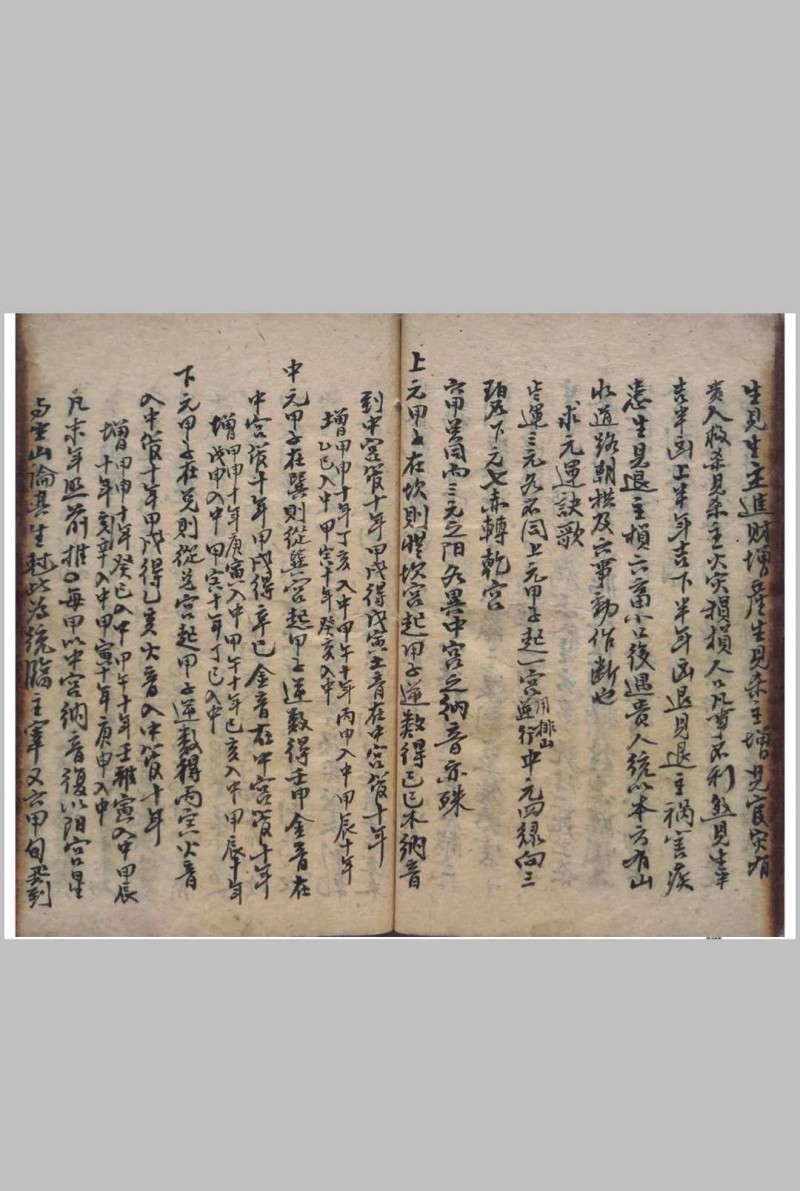 生見生主進財增產生見杀主增見官灾有
貴人收杀見杀主火灾損損人口凡事不利煞見生半
吉半凶上半年吉下半年凶退見退主祸害疾
患生見退主損六畜小口後遇貴人統以本方有山
水道路朝拱及六事動作断也
求元運訣歌
三元各不同上元甲子起一宮用排山逆行中元四綠向三
碧下元七赤轉乾宮
六甲同而三元之阳各異中宮之納音亦殊
上元甲子在坎則從坎宮起甲子逆数得己巳木納音
到中宮管十年甲戌得戊寅土音在中宮管十年
增甲申十年丁亥入中甲午十年丙申入中甲辰十年
乙巳入中甲寅十年癸亥入中
中元甲子在巽則從巽宮起甲子逆数得壬申金音在
中宮管十年甲戌得辛巳金音在中宮管十年
增甲申十年庚寅入中甲午十年己亥入中甲辰十年
戊申入中甲寅十年丁巳入中
下元甲子在兌則從兌宮起甲子逆数得丙寅火音
入中管十年甲戌得乙亥火音入中管十年
增甲申十年癸巳入中甲午十年壬寅入中甲辰
十年辛亥入中甲寅十年庚申入中
凡求年照前推每甲以中宮納音復以阳宮星
与坐山論其生尅此為統臨主宰又六甲旬飛到